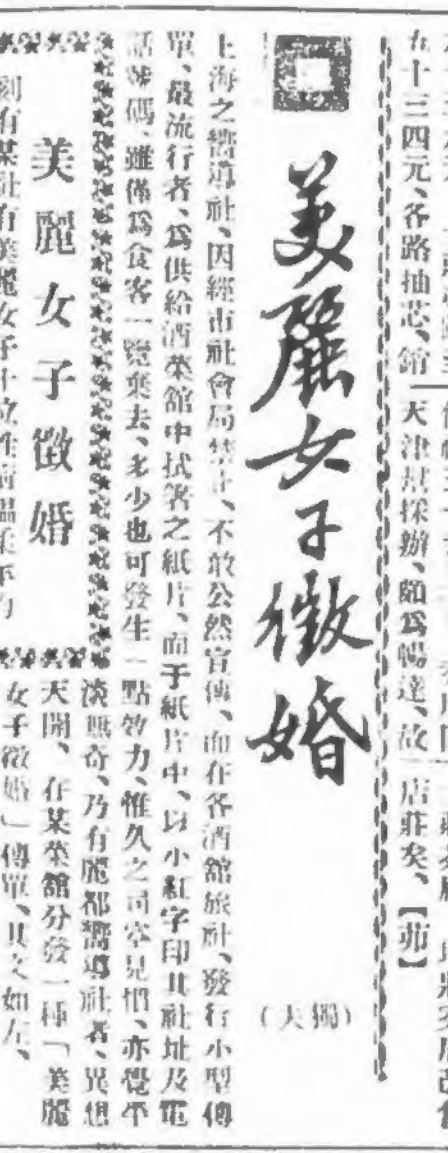 五十三四元、各路抽芯、銷
天津幇採辦、頗爲暢達、故
店莊矣、【茆】
美麗女子徵婚
上海之嚮導社、因經市社會局禁止、不敢公然宣傳、而在各酒舘旅社、發行小型傳
單、最流行者、爲供給酒菜舘中拭箸之紙片、而于紙片中、以小紅字印其社址及電
話號碼、雖僅爲食客一覽棄去、多少也可發生一點效力、惟久之司空見慣、亦覺平
淡無奇、乃有麗都嚮導社者、異想
天開、在某菜舘分發一種「美麗
女子徵婚」傳單、其文如左、
美麗女子徵婚
刻有某社有美麗女子十位性情溫柔不